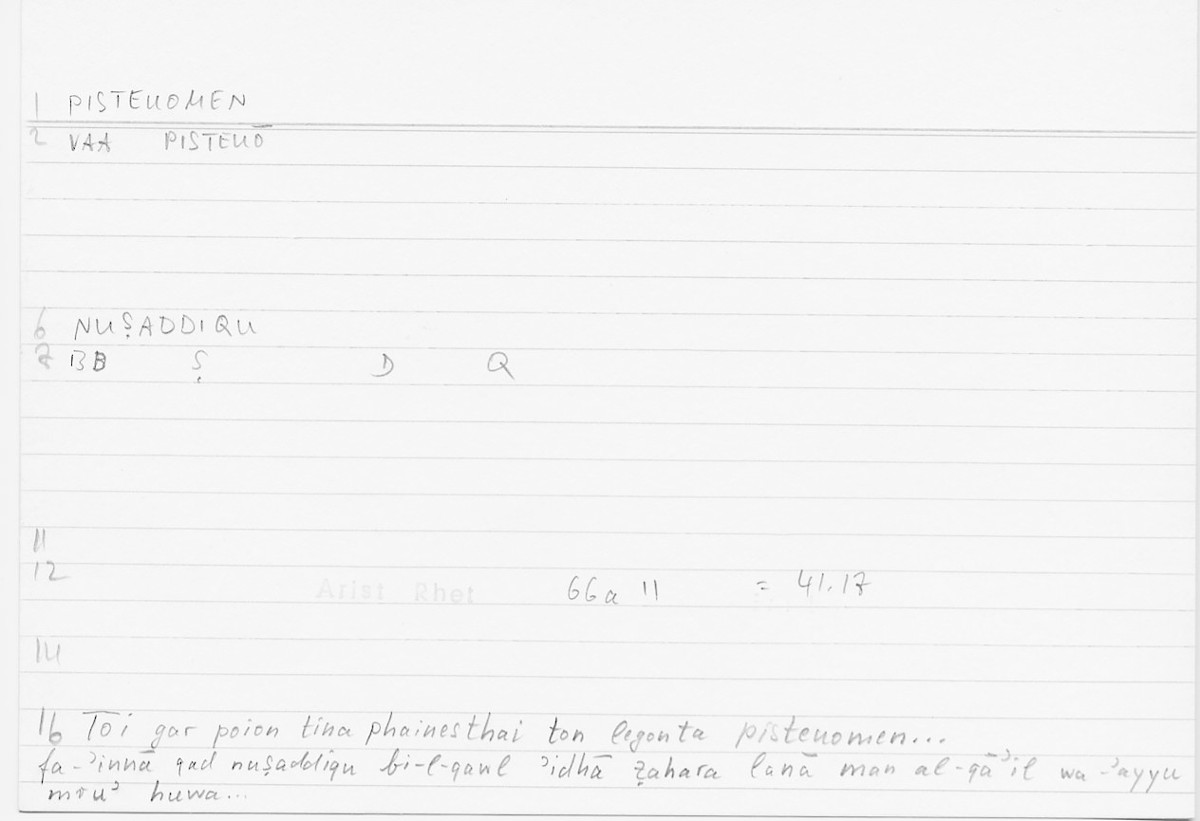 1 PISTEUOMEN
2 VAA PISTEUŌ
6 NUṢADDIQU
7 BB Ṣ D Q
11
12 Arist Rhet 66a 11 = 41.17
14
16 Tōi gar poion tina phainesthai ton legonta pisteuomen...
fa-ʾinnā qad nuṣaddiqu bi-l-qawl ʾidhā ẓahara lanā man al-qāʾil wa-ʾayyu
mruʾ huwa...